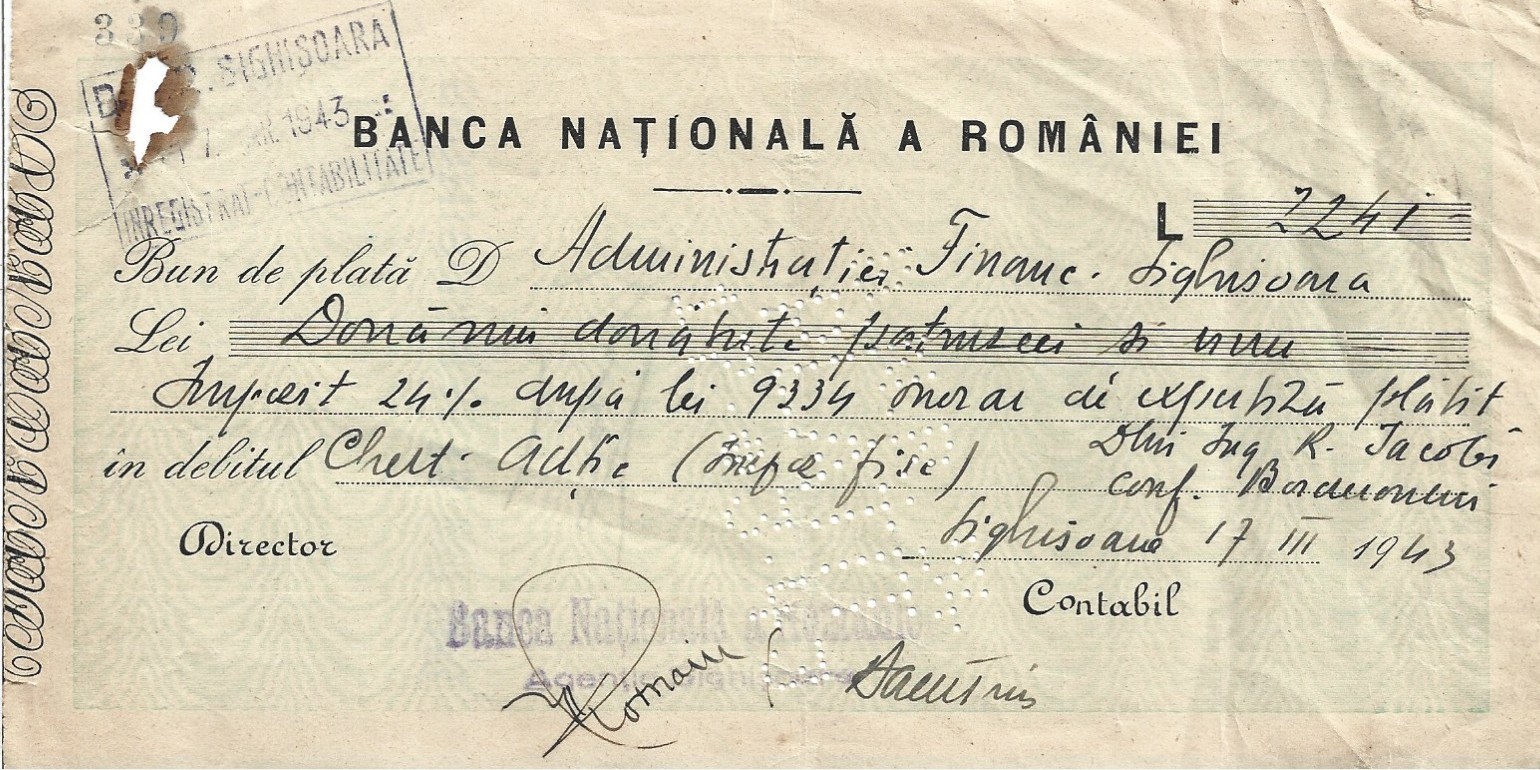 339
SIGHIȘOARA
1943
INREGISTRAT-CONTABILITATE
BANCA NAȚIONALĂ A ROMÂNIEI
L 2241
Bun de plată D Administrației Financ. Sighisoara
Lei Două mii două sute patruzeci si unu
Impozit 24% după lei 9334 onorar de expertiză plătit
in debitul Chelt. Adție (Imp. fise) Dlui Ing R. Jacobi
conf. Borderoului
Sighisoara 17 III 1943
Director
Contabil
Banca Națională a României
Agenția Sighișoara